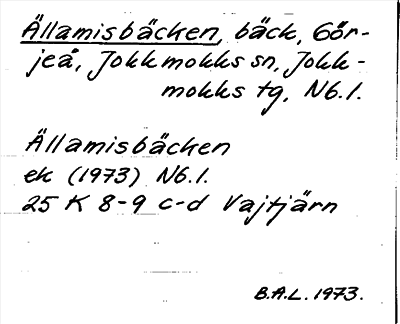 Ällamisbäcken, bäck, Gör-
jeå, Jokkmokks sn, Jokk-
mokks tg, Nb. l.
Ällamisbäcken
ek (1973) Nb. l.
25 K 8-9 c-d Vajtjärn
B.A.L. 1973.